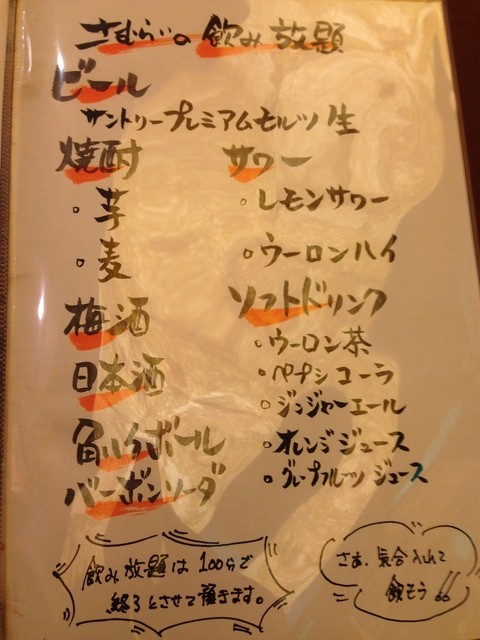 さむらいの 飲み放題
ビール
サントリープレミアムモルツ生
焼酎
。芋
。麦
梅酒
日本酒
角ハイボール
バーボンソーダ
サワー
。レモンサワー
。ウーロンハイ
ソフトドリンク
。ウーロン茶
。ペプシコーラ
。ジンジャーエール
。オレンジジュース
。グレープフルーツジュース
飲み放題は100分で
終了とさせて頂きます。
さぁ、気合入れて
飲もう!!